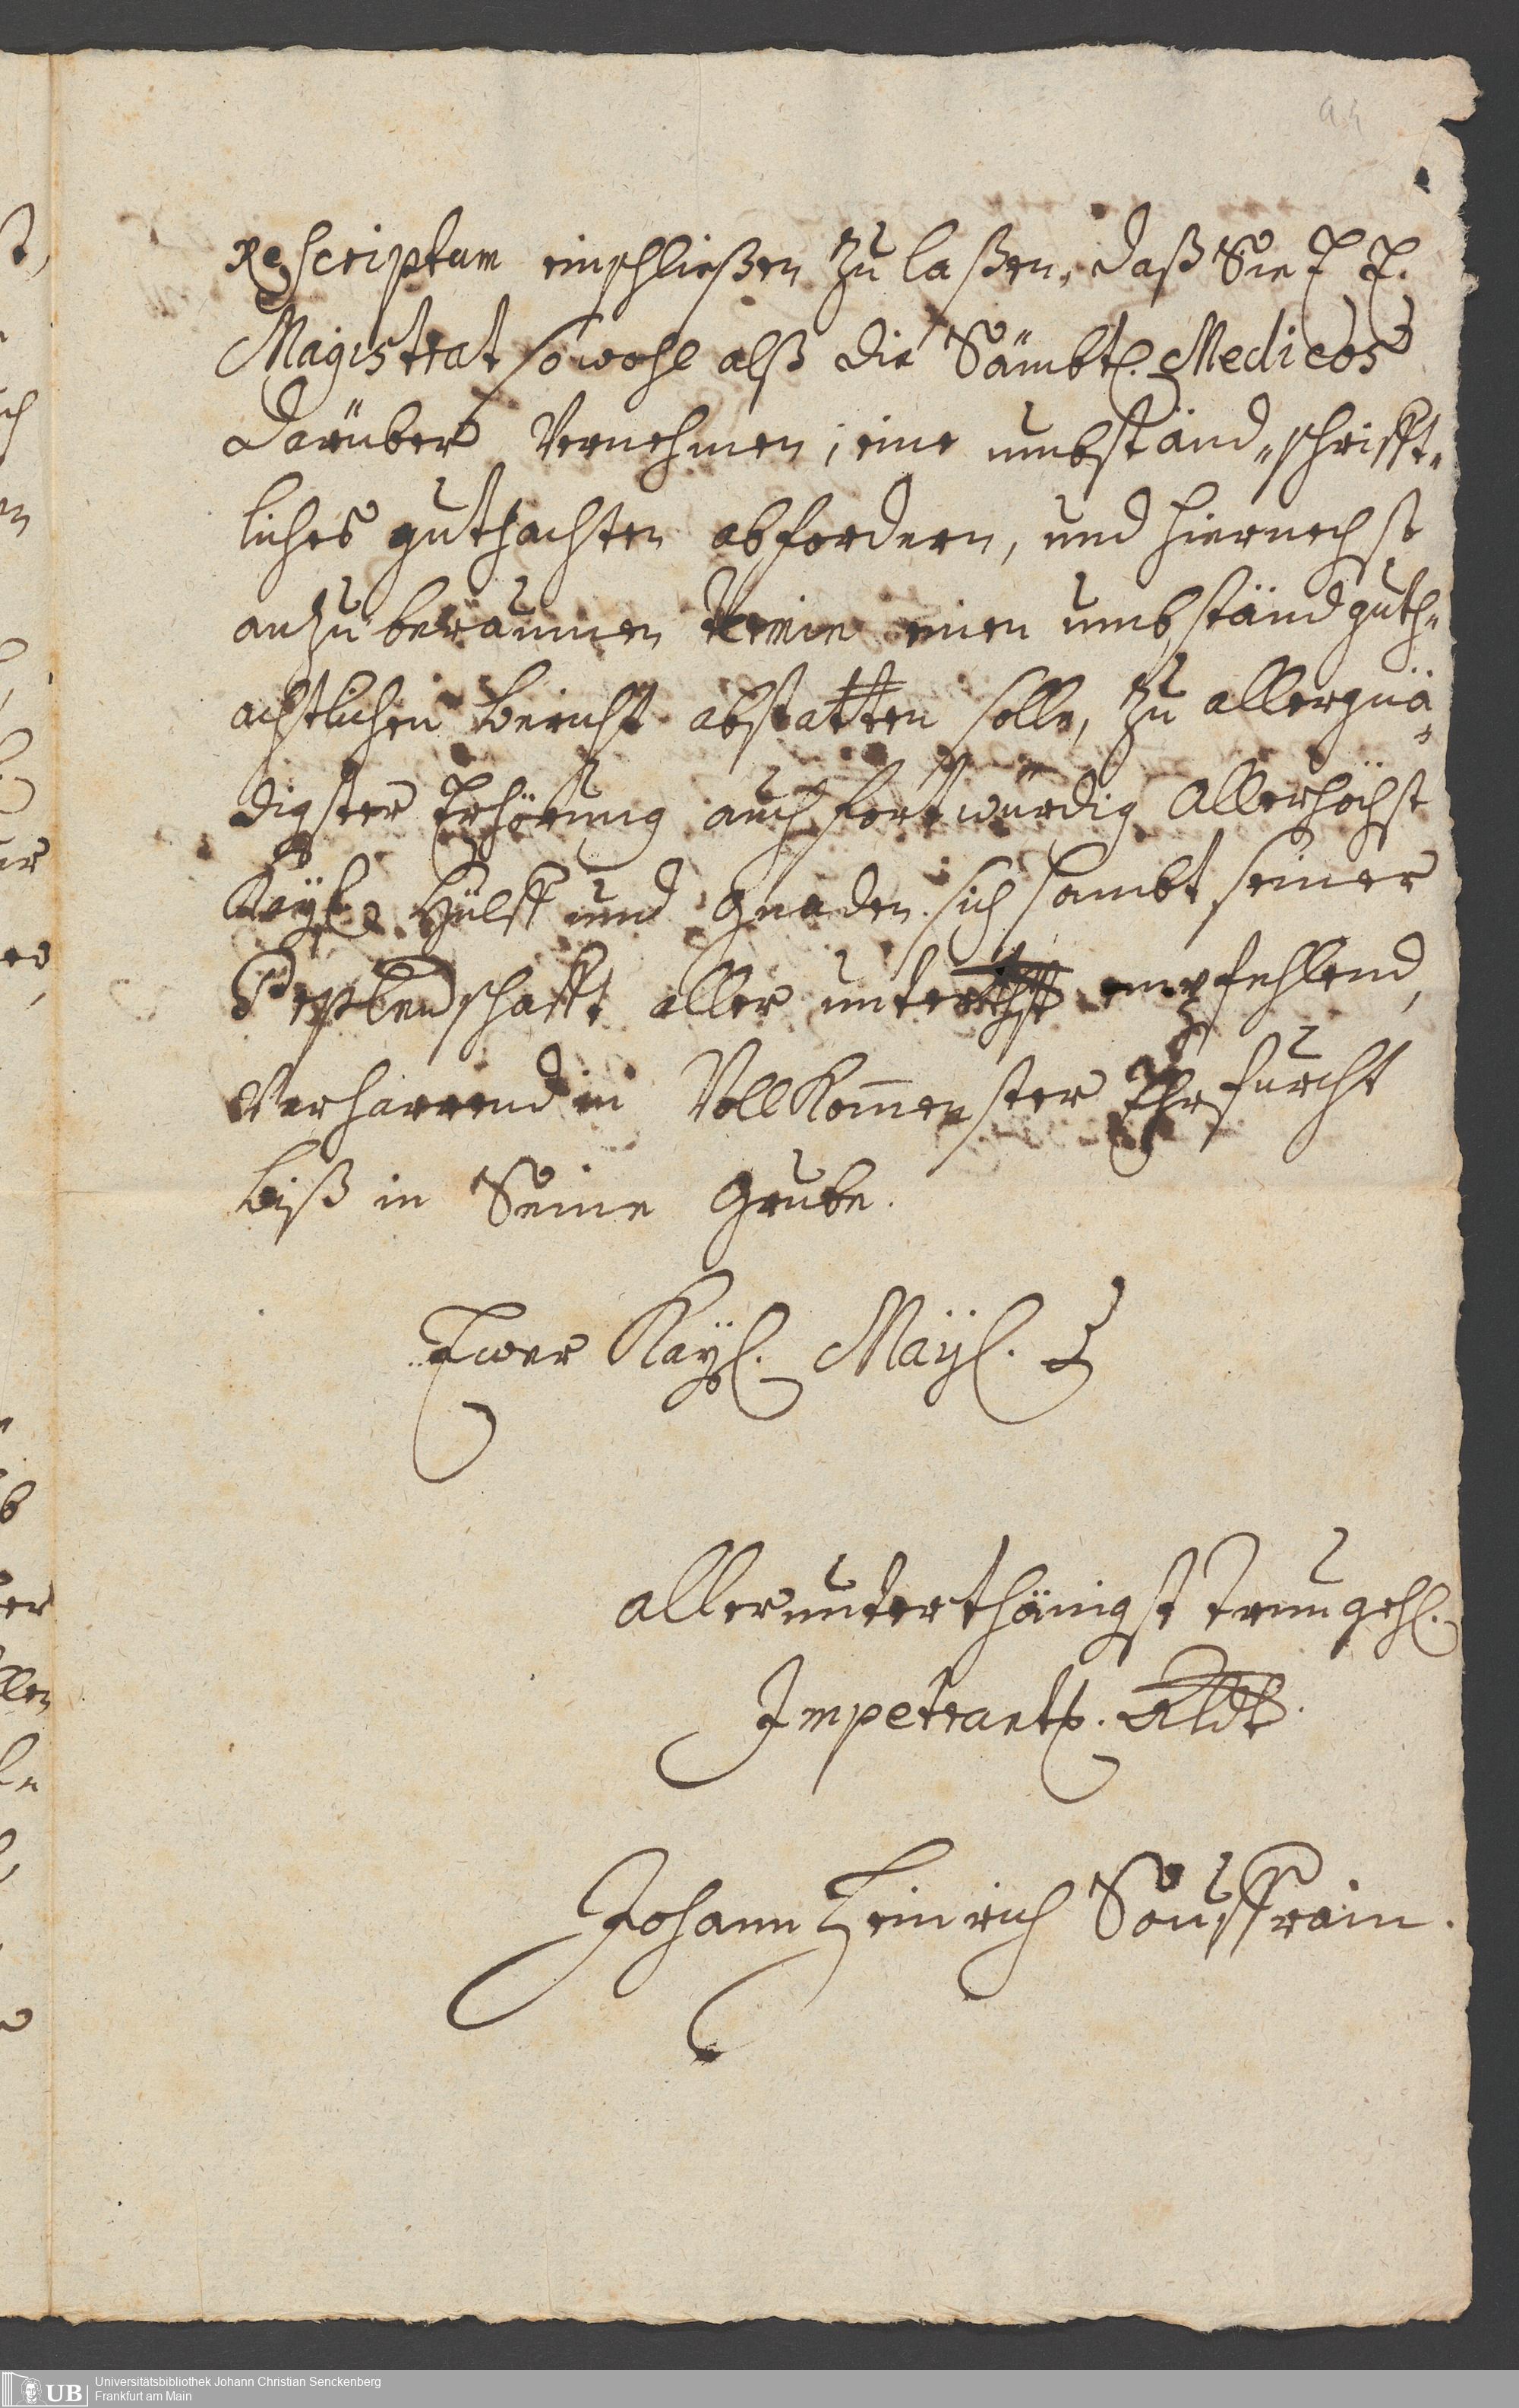 Rescriptum einschließen zu laßen, daß Sie E. E.
Magistrat so wohl alß die Sämbtl. Medicos
darüber Vernehmen, eine umbständ„schrifft„
liches guthachten abfordern, und hiernechst
anzuberaumen termin einen umbständ guth„
achtlichen bericht abstatten solle, zu allergnä„
digster Erhörung auch fortwürdig Allerhöchst
Kayl. Hülff und Gnaden sich sambt seiner
schafft aller unterthst empfehlend,
Verharrend in Vollkom̄enster Ehrfurcht
biß in Seine Grube.
Ewer Kayl. Mayl.
allerunterthänigst treugehl.
Impetrant.
Johann Heinrich Souffrain.
Universitätsbibliothek Johann Christian Senckenberg
Frankfurt am Main
UB